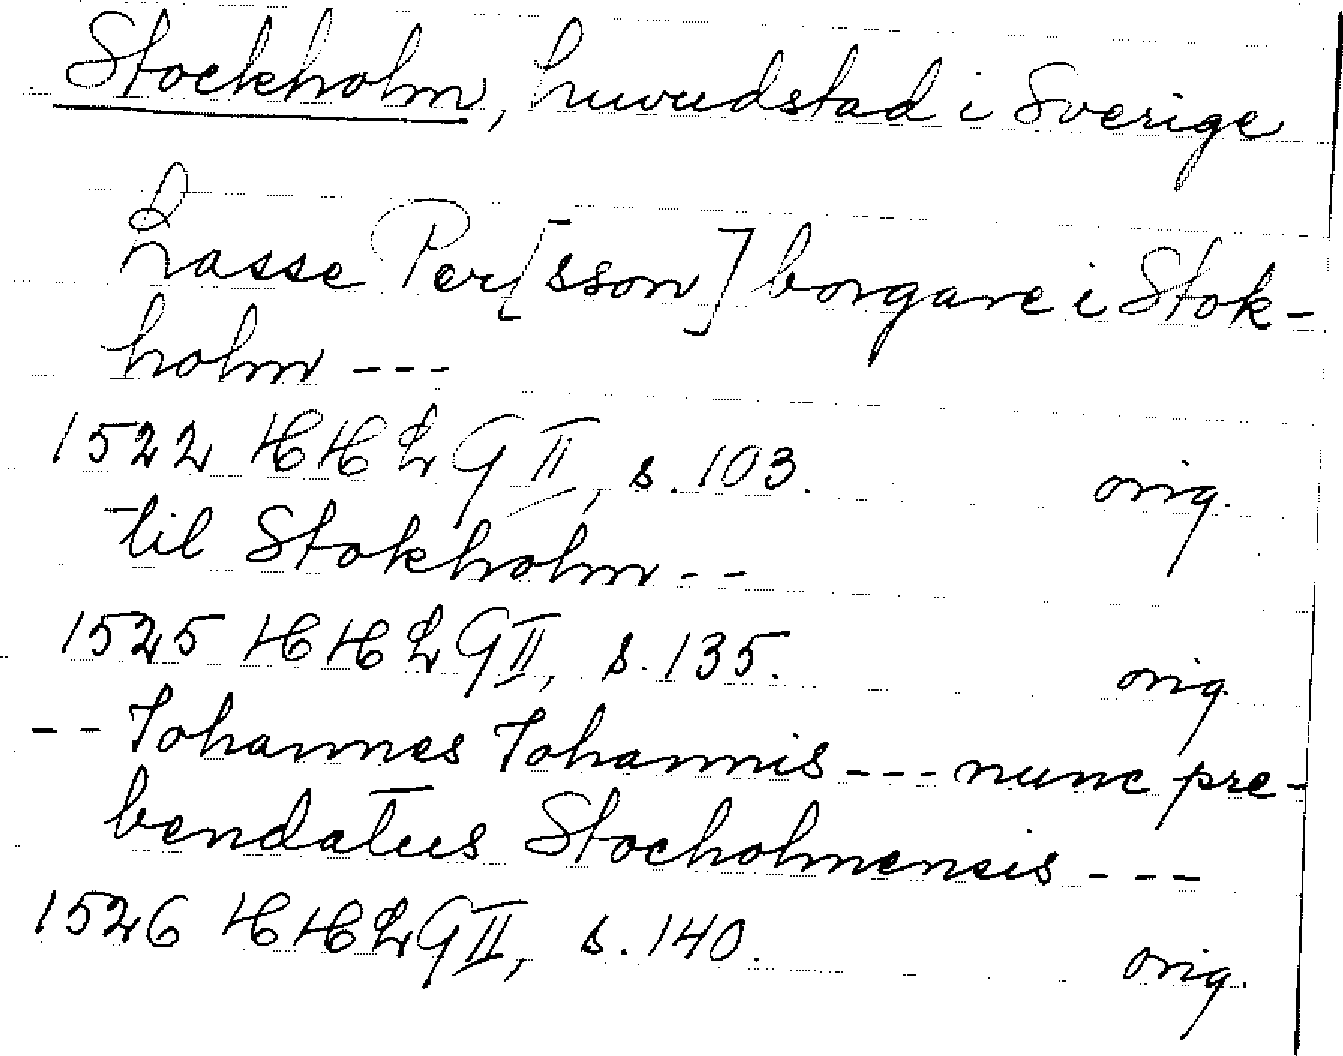 Stockholm, huvudstad i Sverige
Lasse Per[sson] borgare i Stok-
holm ---
1522 HHLG II, s. 103. orig.
til Stokholm --
1525 HHLG II, s. 135. orig.
-- Johannes Johannis --- nunc pre-
bendatus Stocholmensis ---
1526 HHLG II, s. 140. orig.